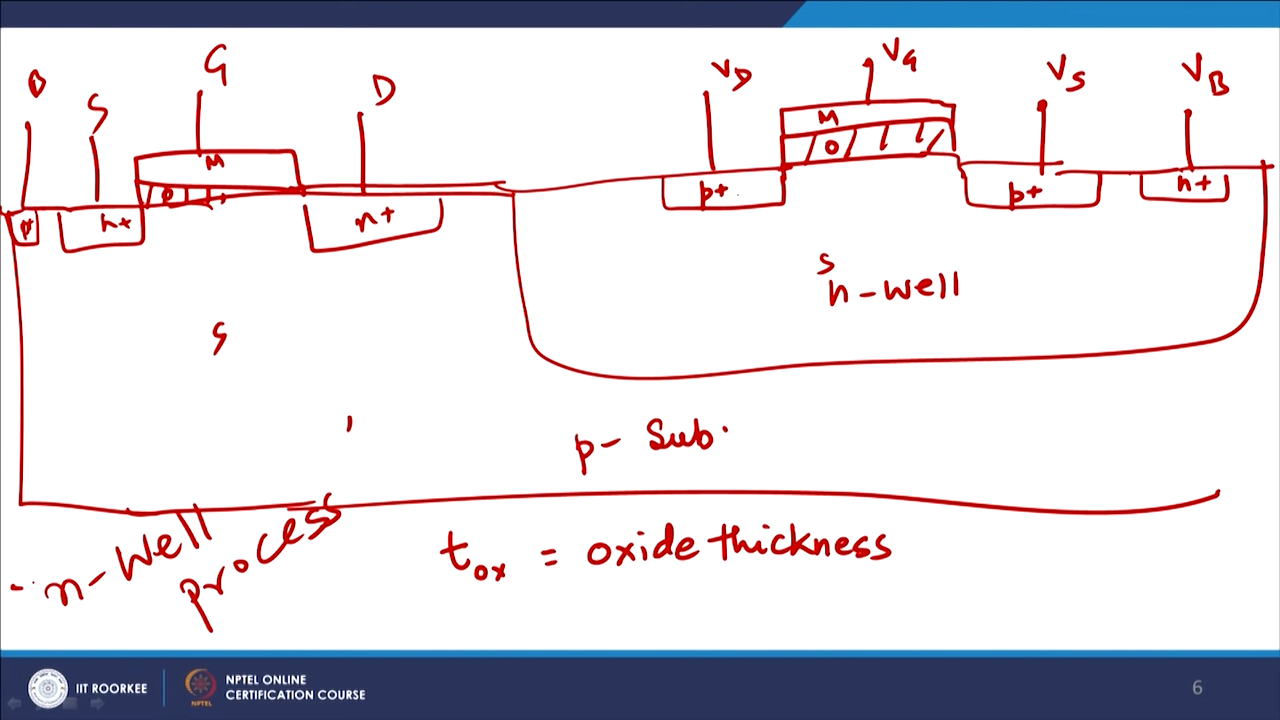 B S G D V_D V_G V_S V_B
M M
O O
p+ n+ n+ p+ p+ n+
S S
n-well
p- Sub.
n-well process
t_ox = oxide thickness
IIT ROORKEE
NPTEL ONLINE
CERTIFICATION COURSE
NPTEL
6